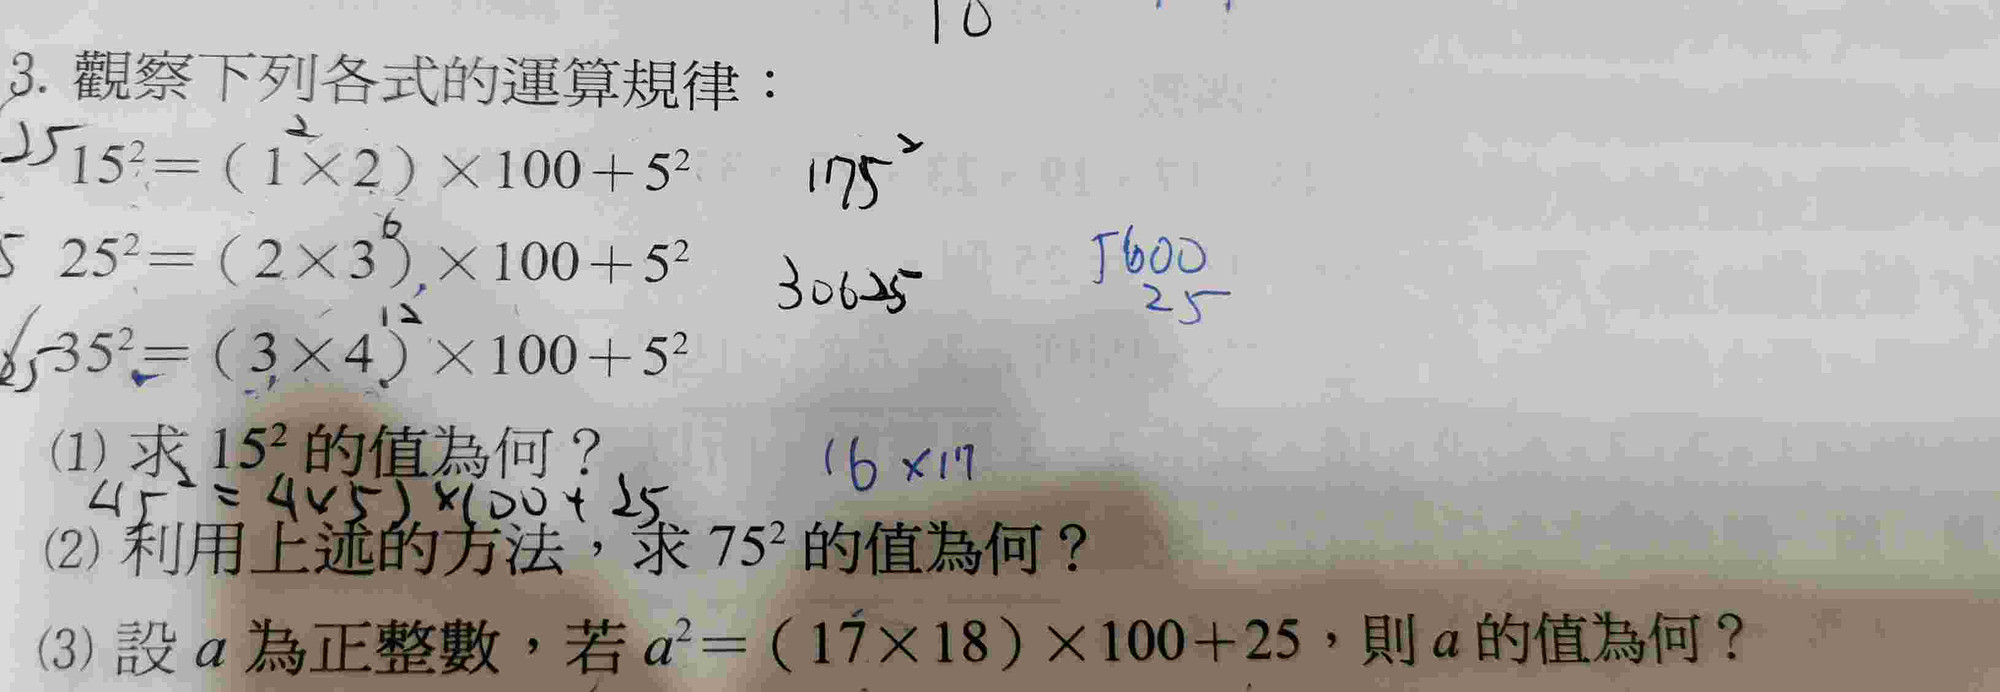 10
3. 觀察下列各式的運算規律：
25 15²=(1×2)×100+5² 2 175²
5 25²=(2×3)×100+5² 6 30625 5600
25
35²=(3×4)×100+5² 12
(1) 求 15² 的值為何？ 16×17
45²=4×5)×100+25
(2) 利用上述的方法，求 75² 的值為何？
(3) 設 a 為正整數，若 a²=(17×18)×100+25，則 a 的值為何？